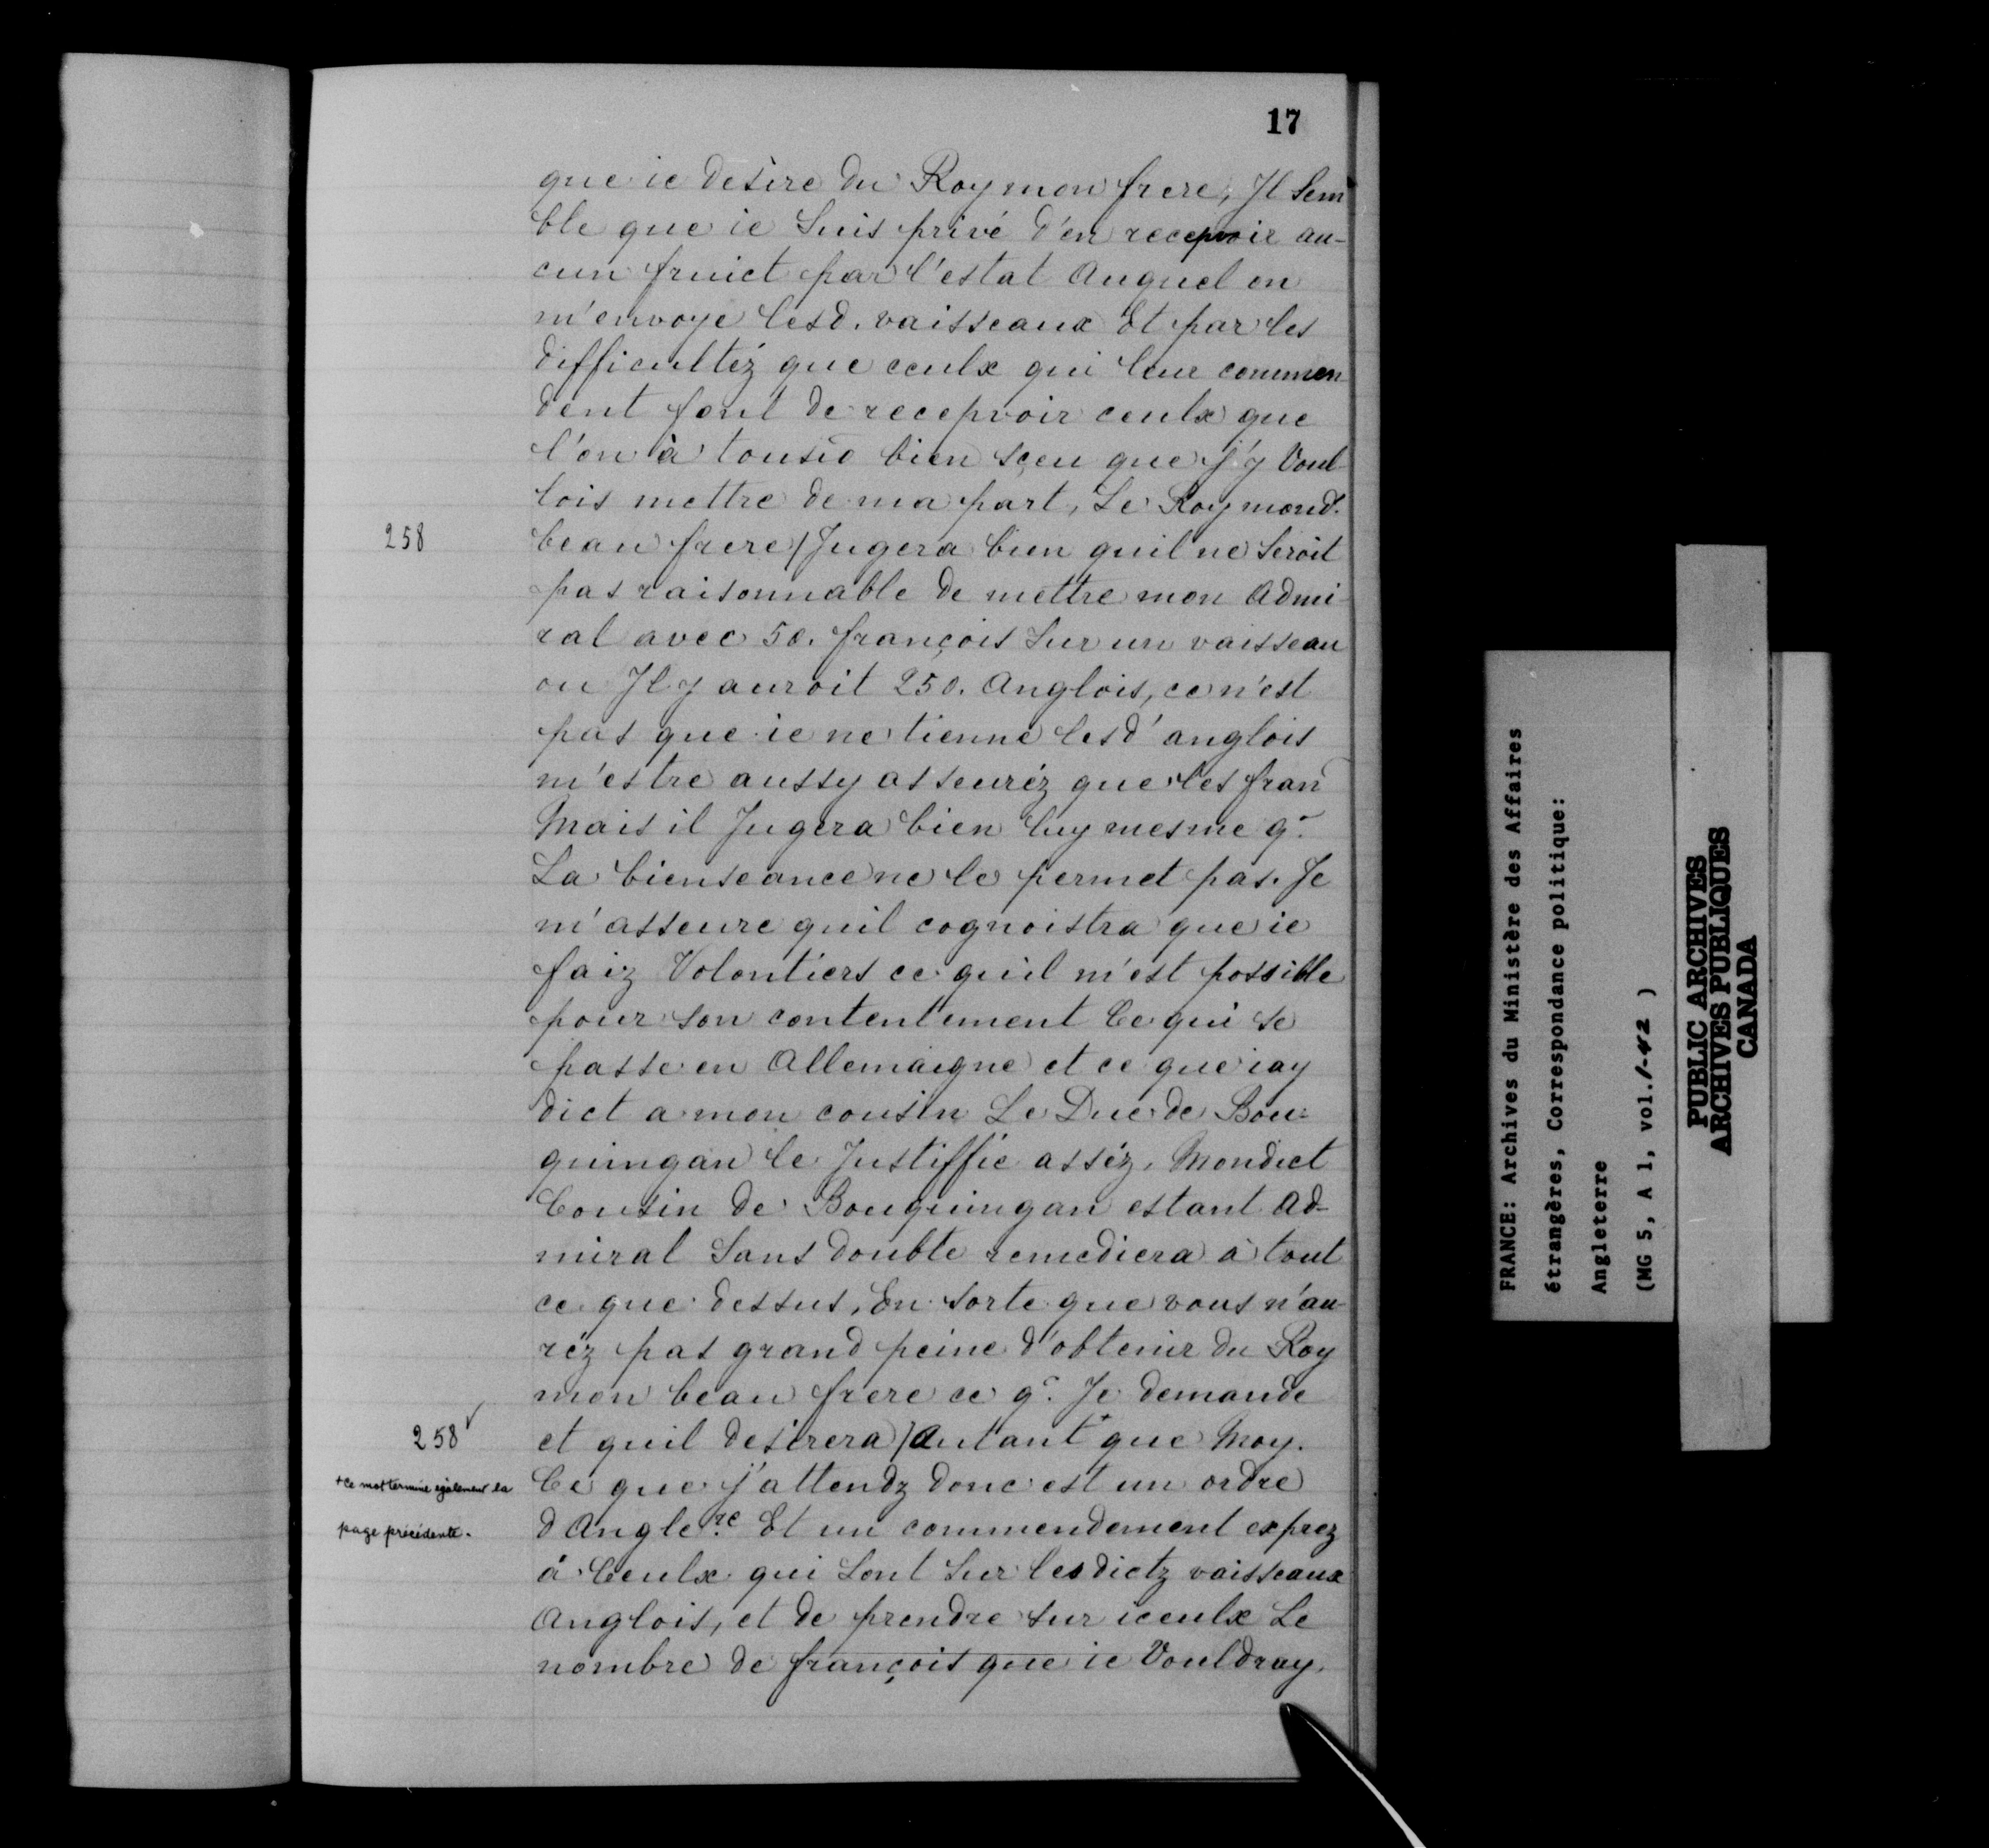 17
que ie desire du Roy mon frere, Il Sem
ble que ie Suis privé d'en recepvoir au-
cun fruict par l'estat Auquel on
m'envoye lesd. vaisseaux Et par les
difficultéz que ceulx qui leur commen
dent font de recepvoir ceulx que
l'on à tousio bien sçeu que j'y Voul
lois mettre de ma part, Le Roy mond.
258
beau frere / Jugera bien quil ne Seroit
pas raisonnable de mettre mon Admi-
ral avec 50. françois Sur un vaisseau
ou Il y auroit 250. Anglois, ce n'est
pas que ie ne tienne lesd' anglois
m'estre aussy asseuréz que les fran
Mais il Jugera bien luy mesme q.
La bienseance ne le permet pas. Je
m'asseure quil cognoistra que ie
faiz Volontiers ce quil m'est possible
pour son contentement Ce qui se
passe en Allemaigne et ce que iay
dict a mon cousin Le Duc de Bou-
quingan le Justiffie asséz, Mondict
Cousin de Bouquingan estant Ad-
miral Sans doubte remediera à tout
ce que dessus, En sorte que vous n'au-
réz pas grand peine d'obtenir du Roy
mon beau frere ce q. Je demande
258 v
et quil desirera / Autant + que Moy.
+ Ce mot termine également la
page précédente.
Ce que j'attendz donc est un ordre
d'Angle.re Et un commendement exprez
à Ceulx qui Sont Sur lesdictz vaisseaux
Anglois, et de prendre sur iceulx Le
nombre de françois que ie Vouldray,
FRANCE: Archives du Ministère des Affaires
étrangères, Correspondance politique:
Angleterre
(MG 5, A 1, vol. 1-42 )
PUBLIC ARCHIVES
ARCHIVES PUBLIQUES
CANADA